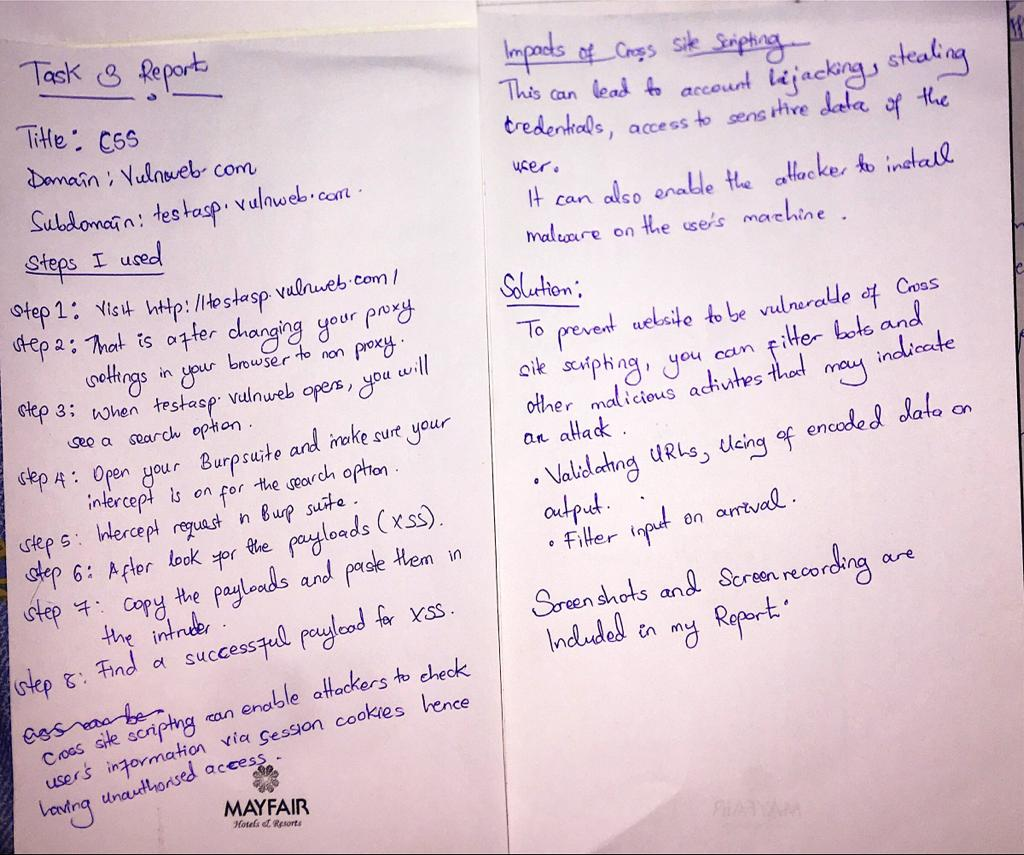 Task 3 Report
Title: CSS
Domain: Vulnweb.com
Subdomain: testasp.vulnweb.com.
Steps I used
Step 1: Visit http://testasp.vulnweb.com/
Step 2: That is after changing your proxy
settings in your browser to non proxy.
Step 3: When testasp.vulnweb opens, you will
see a search option.
Step 4: Open your Burpsuite and make sure your
intercept is on for the search option.
Step 5: Intercept request n Burp suite.
Step 6: After look for the payloads (XSS).
Step 7: Copy the payloads and paste them in
the intruder.
Step 8: Find a successful payload for XSS.
Cross site scripting can enable attackers to check
user's information via session cookies hence
having unauthorised access.
MAYFAIR
Hotels & Resorts
Impacts of Cross Site Scripting
This can lead to account hijacking, stealing
credentials, access to sensitive data of the
user.
It can also enable the attacker to install
malware on the user's machine.
Solution:
To prevent website to be vulnerable of Cross
site scripting, you can filter bots and
other malicious activities that may indicate
an attack.
• Validating URLs, Using of encoded data on
output.
• Filter input on arrival.
Screenshots and Screenrecording are
Included in my Report.